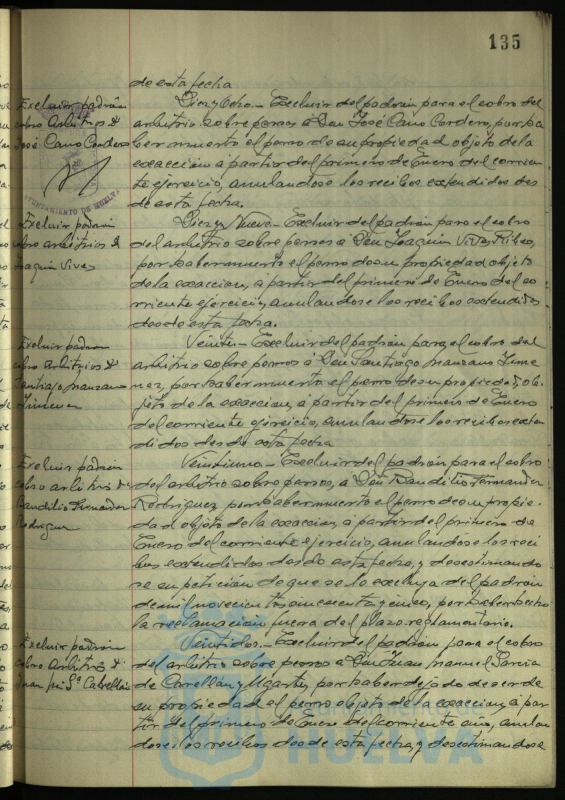 135
de esta fecha
Excluir padrón
cobro Arbitrios D.
José Cano Cordero
AYUNTAMIENTO DE HUELVA
Diez y Ocho.- Excluir del padrón para el cobro del
arbitrio sobre perros a Don José Cano Cordero, por ha
ber muerto el perro de su propiedad objeto de la
exacción, a partir del primero de Enero del corrien
te ejercicio, anulandose los recibos extendidos des
de esta fecha.
Excluir padrón
cobro arbitrios D.
Joaquin Vives
Diez y Nueve.- Excluir del padrón para el cobro
del arbitrio sobre perros a Don Joaquin Vives Ribes,
por haber muerto el perro de su propiedad objeto
de la exaccion, a partir del primero de Enero del co
rriente ejercicio, anulandose los recibos extendidos
desde esta fecha.
Excluir padron
cobro arbitrios D.
Santiago Manzano
Jimenez
Veinte.- Excluir del padrón para el cobro del
arbitrio sobre perros a Don Santiago Manzano Jime
nez, por haber muerto el perro de su propiedad, ob
jeto de la exaccion, a partir del primero de Enero
del corriente ejercicio, anulandose los recibos exten
didos desde esta fecha
Excluir padrón
cobro arbitrios D.
Baudilio Fernandez
Rodriguez
Veintiuno.- Excluir del padrón para el cobro
del arbitrio sobre perros, a Don Baudilio Fernandez
Rodriguez por haber muerto el perro de su propie-
dad objeto de la exaccion, a partir del primero de
Enero del corriente ejercicio, anulandose los reci
bos extendidos desde esta fecha, y desestimando
se su petición de que se le excluya del padrón
de mil novecientos cincuenta y cinco, por haber hecho
la reclamación fuera del plazo reglamentario.
Excluir padrón
cobro arbitrios D.
Juan
Veintidos.- Excluir del padrón para el cobro
del arbitrio sobre perros a Don Juan Manuel Garcia
de y Ugarte, por haber dejado de ser de
su propiedad el perro objeto de la exaccion, a par
tir del primero de Enero del corriente año, anulan
dose los recibos desde esta fecha, y desestimandose
HUELVA